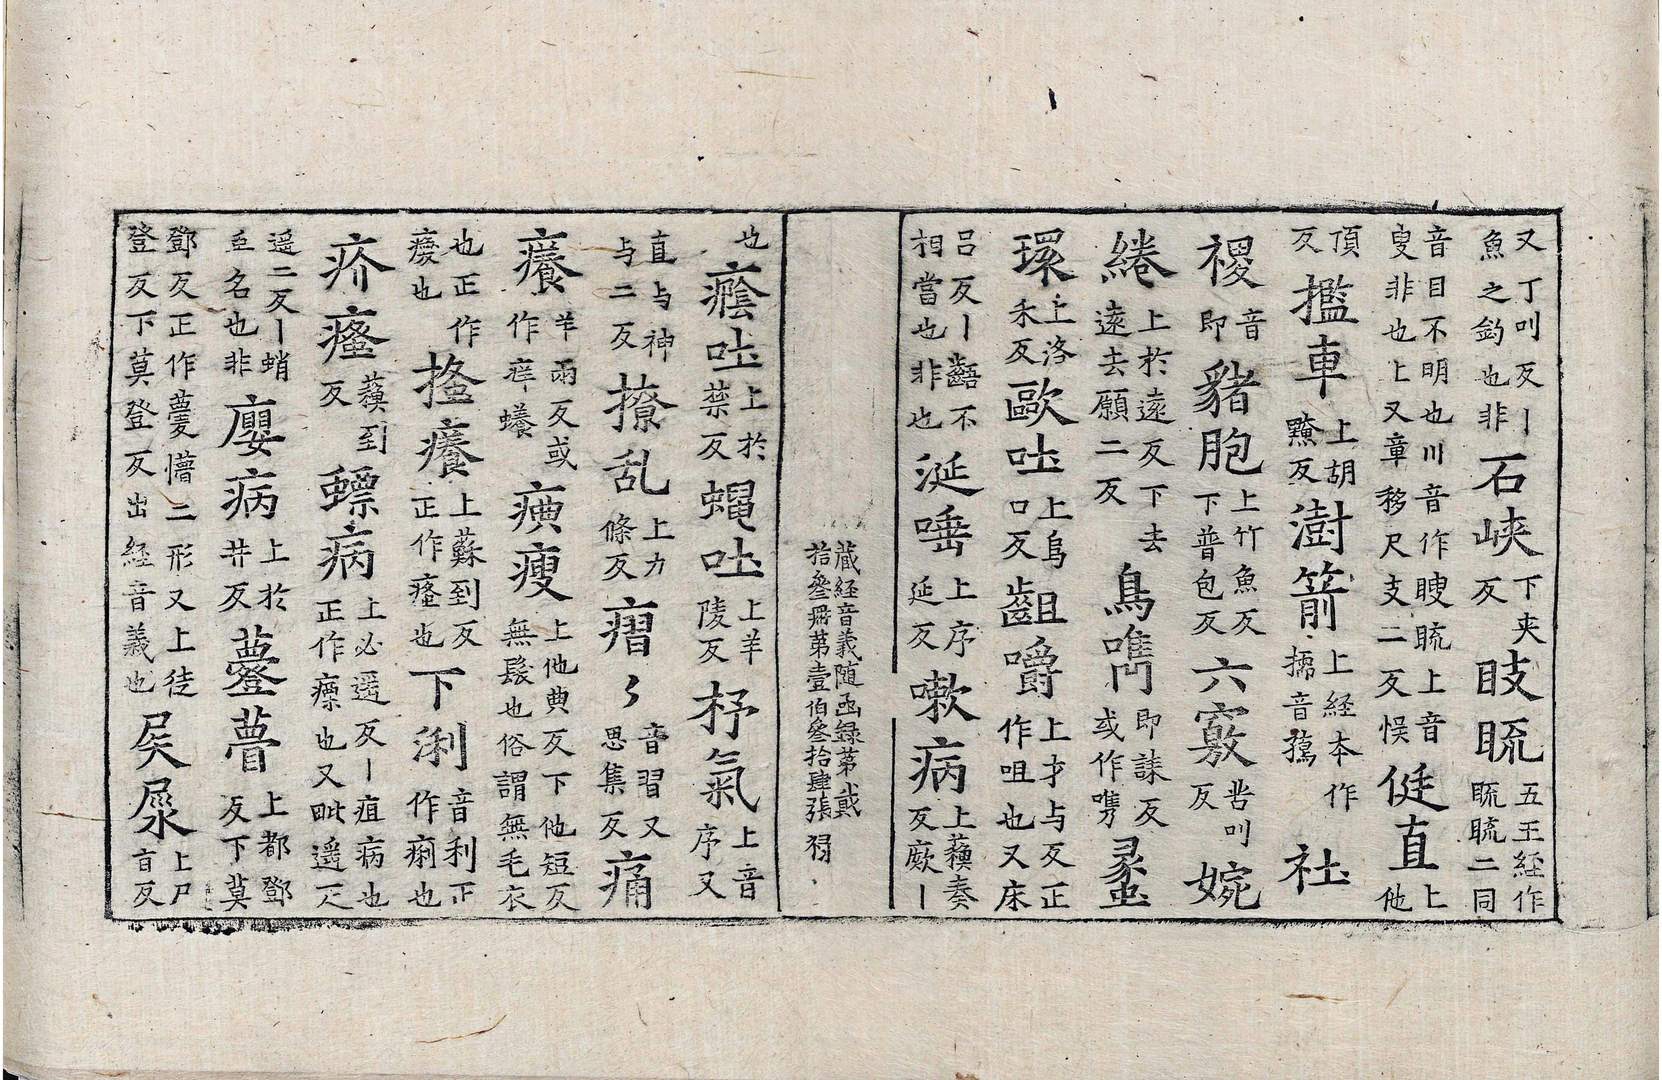 又丁叫反丨魚之釣也非石峽下夾反䀹䀮五王経作䀮䀮二同
音目不明也川音作瞍䀮上音叟非也上又章移尺支二反悮侹直上他
頂反㨫車上胡黤反澍箭上経本作擩音㺉社
禝音即豬胞上竹魚反下普包反六竅苦叫反婉
綣上於遠反下去遠去願二反鳥噣即諌反或作㗱蠡
環上洛禾反歐吐上烏口反齟嚼上才与反正作咀也又床
吕反丨齬不相當也非也涎唾上序延反嗽病上蘓奏反廞丨
蔵経音義随函録第貳拾叄冊第壹伯叄拾肆張
也癊吐上於禁反蠅吐上羊陵反杼氣上音序又
直与神与二反撩乱上力條反㿇々音習又思集反痛
癢羊兩反或作痒蠰㿉瘦上他典反下他短反無髮也俗謂無毛衣
也正作癈也搔癢上蘇到反正作瘙也下浰音利正作痢也
疥瘙蘓到反螵病上必遥反丨疽病也正作瘭也又毗遥疋
遥二反丨蛸虫名也非癭病上於井反䔲瞢上都鄧反下莫
鄧反正作㝱懵二形又上徒登反下莫登反出経音義也屎尿上尸盲反